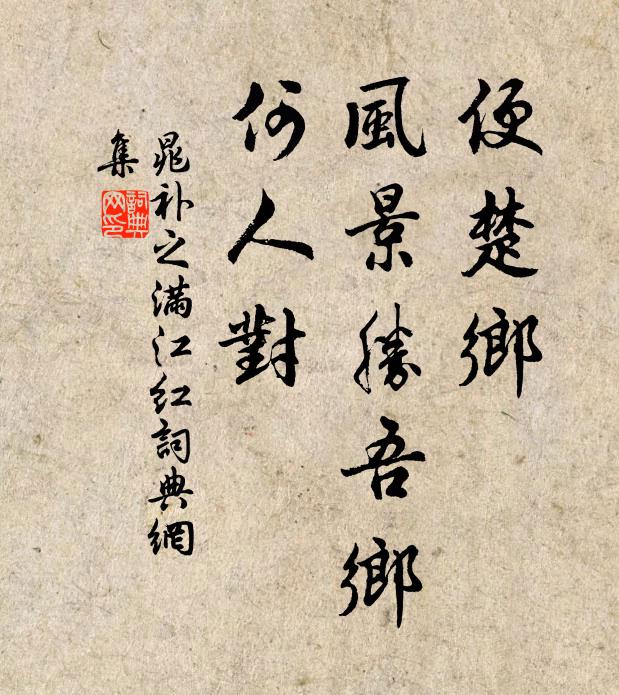 便楚鄉
風景勝吾鄉
何人對
晁补之满江红詞典網
集
詞典
网印